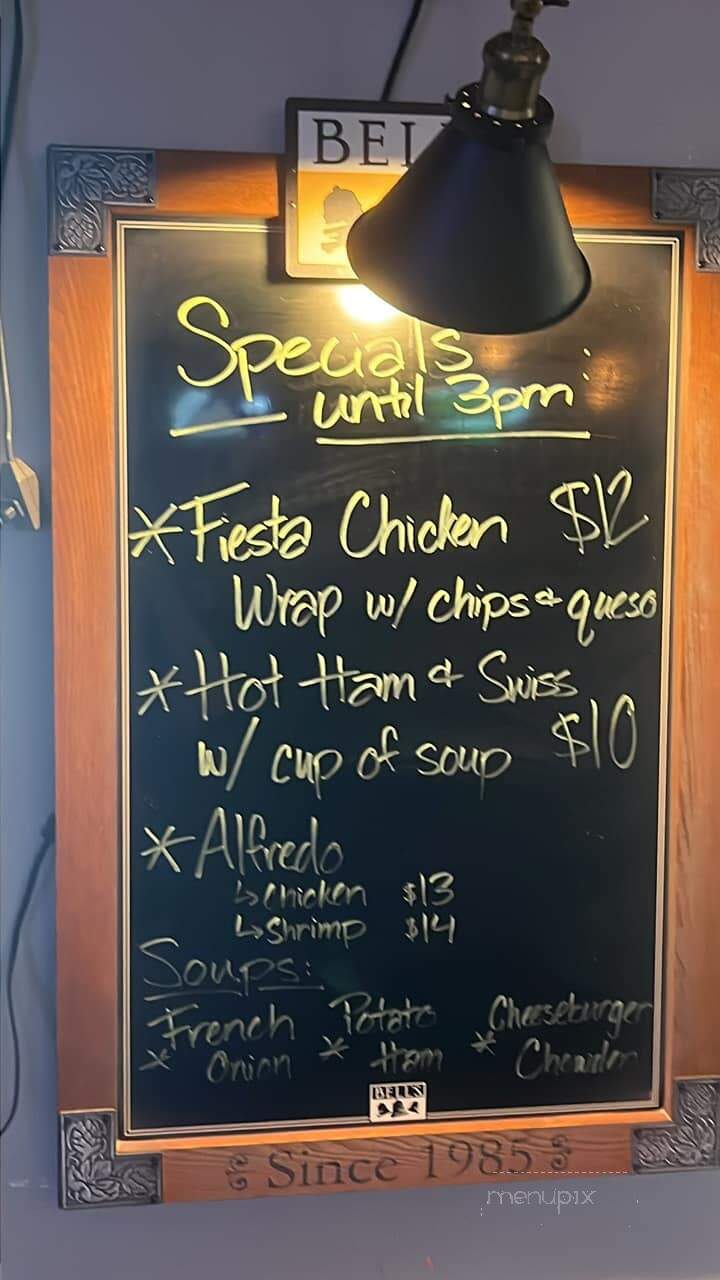 BELL
Specials
until 3pm:
*Fiesta Chicken $12
Wrap w/ chips & queso
*Hot Ham & Swiss
w/ cup of soup $10
*Alfredo
↳Chicken $13
↳Shrimp $14
Soups:
French Potato Cheeseburger
* Onion * Ham * Chowder
BELL'S
Since 1985
menupix